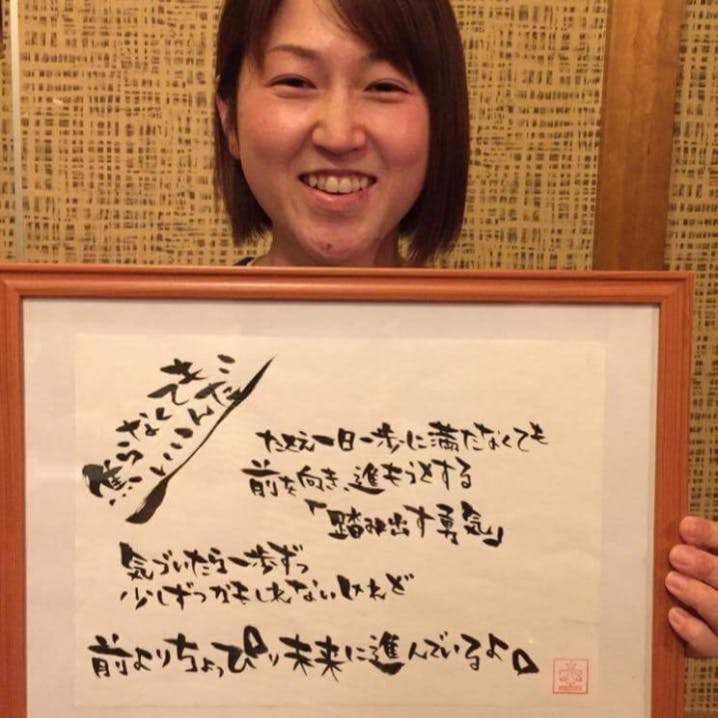 焦らなくて
たとえ一日一歩に満たなくても
前を向き、進もうとする
「踏み出す勇気」
気づいたら一歩ずつ
少しずつかもしれないけれど
前よりちょっぴり未来に進んでいるよ。